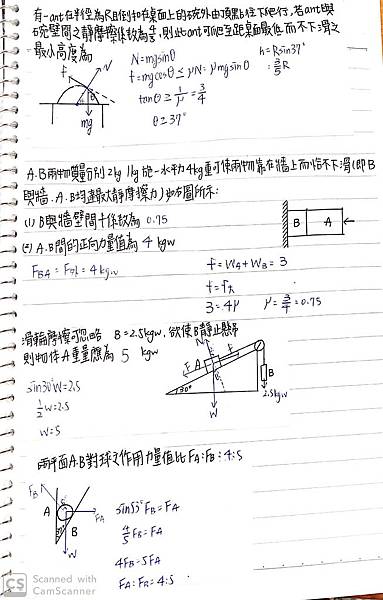 有一ant在半徑為R且倒扣在桌面上的碗外由頂點往下爬行,若ant與
碗壁間之靜摩擦係數為4/3,則此ant可爬至距桌面最低而不下滑之
最小高度為
N=mgsinθ
f=mgcosθ≤μN=μmgsinθ
tanθ≥1/μ=3/4
θ≥37°
h=Rsin37°
=3/5R
f
N
θ
mg
A.B兩物質量分別2kg 1kg 施一水平4kg重可使兩物靠在牆上而恰不下滑(即B
與牆.A.B均達最大靜摩擦力)如圖所示:
(1) B與牆壁間μ係數為 0.75
(2) A.B間的正向力量值為 4 kgw
FBA=F推=4kgw
f=WA+WB=3
f=fR
3=4μ μ=3/4=0.75
B A
滑輪摩擦可忽略 B=2.5kgw,欲使B靜止懸吊
則物体A重量應為 5 kgw
sin30°W=2.5
1/2W=2.5
W=5
N
F
A
f
30°
W
B
2.5kgw
兩平面A.B對球之作用力量值比FA:FB=4:5
sin53°FB=FA
4/5FB=FA
4FB=5FA
FA:FB=4:5
FB
A
FA
B
W
CS Scanned with
CamScanner